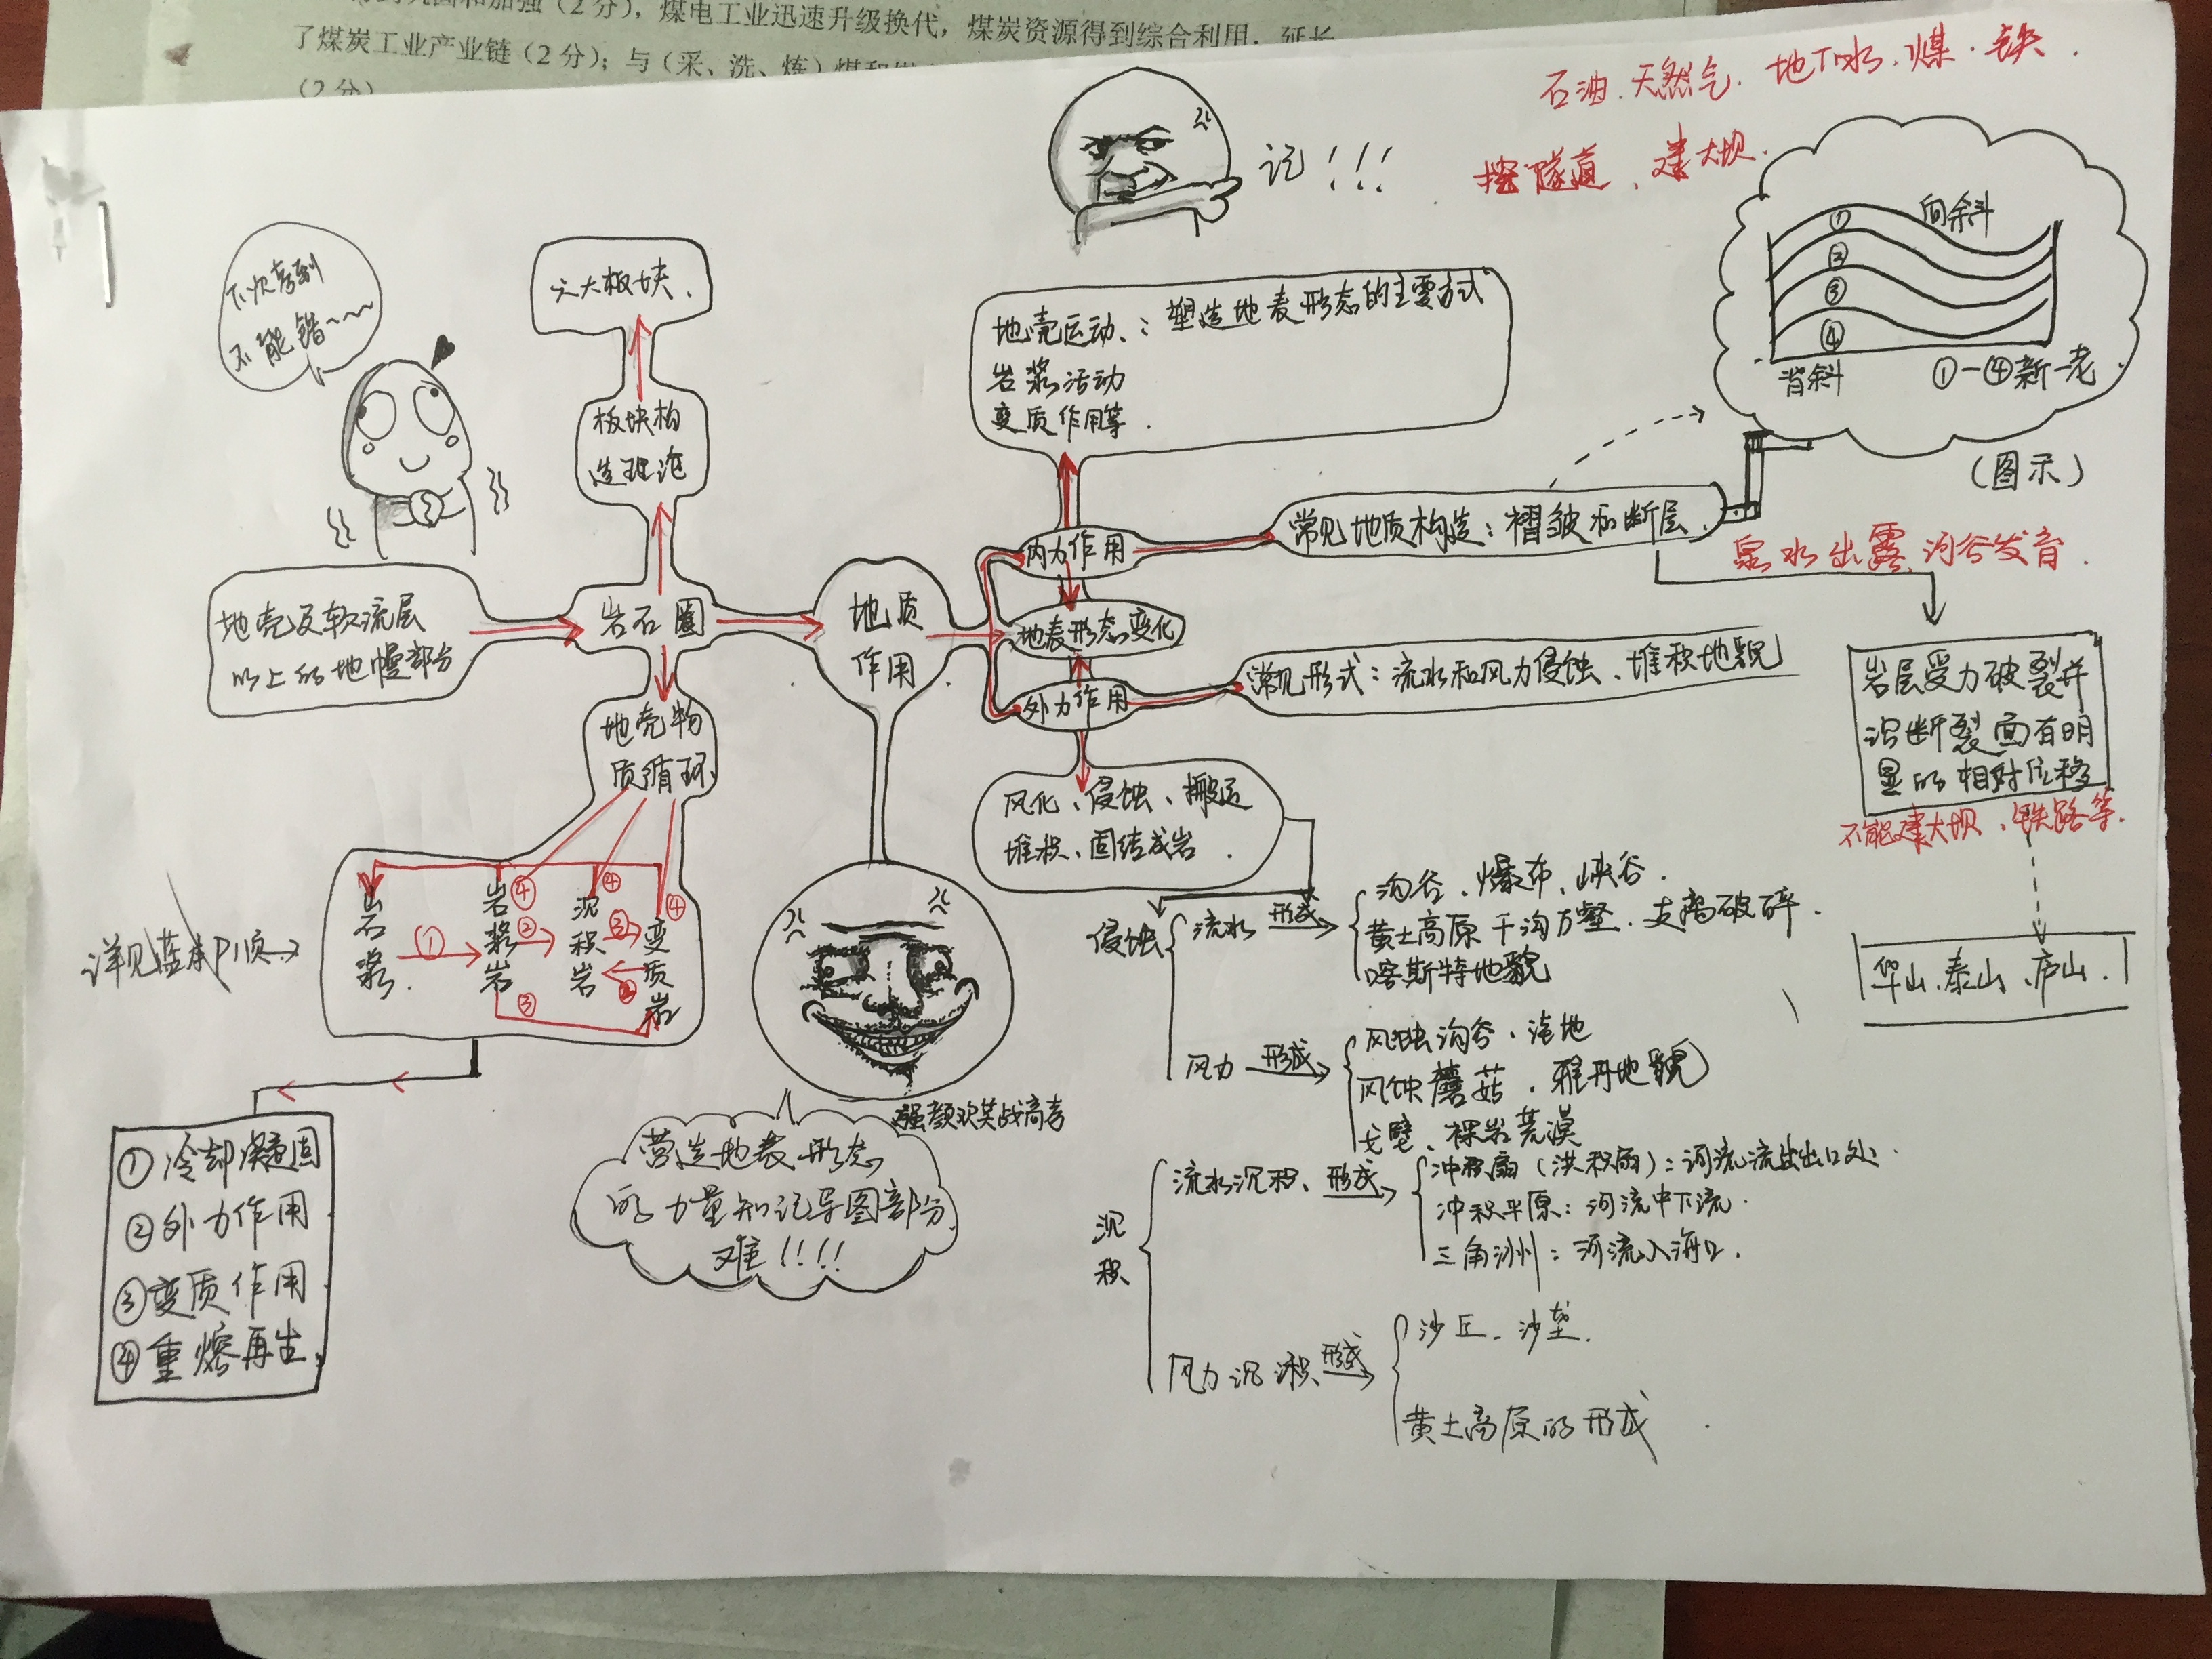 煤电工业迅速升级换代，煤炭资源得到综合利用，延长
了煤炭工业产业链（2分）；与（采、洗、炼）煤和
（2分）
石油、天然气、地下水、煤、铁.
挖隧道、建大坝.
记！！！
下次考到
不能错~~~
六大板块.
板块构
造理论
地壳及软流层
以上的地幔部分
岩石圈
地壳物
质循环
地质
作用
地壳运动、：塑造地表形态的主要方式
岩浆活动
变质作用等.
内力作用
地表形态变化
外力作用
常见地质构造：褶皱和断层.
常见形式：流水和风力侵蚀、堆积地貌
向斜
①
②
③
④
背斜
①—④新—老
（图示）
泉水出露、河谷发育.
岩层受力破裂并
沿断裂面有明
显的相对位移
不能建大坝、铁路等.
华山、泰山、庐山.
风化、侵蚀、搬运
堆积、固结成岩.
侵蚀
流水 形成
沟谷、瀑布、峡谷.
黄土高原千沟万壑、支离破碎.
喀斯特地貌
风力 形成
风蚀沟谷、洼地
风蚀蘑菇、雅丹地貌
戈壁、裸岩荒漠
沉积
流水沉积、形成
冲积扇（洪积扇）：河流流出出口处.
冲积平原：河流中下流.
三角洲州：河流入海口.
风力沉积、形成
沙丘、沙垄.
黄土高原的形成
详见蓝本P1页
岩浆.
岩浆岩
沉积岩
变质岩
①
②
③
④
④
④
②
③
①冷却凝固
②外力作用
③变质作用
④重熔再生.
强颜欢笑战高考
营造地表形态
的力量知记导图部分
难！！！！